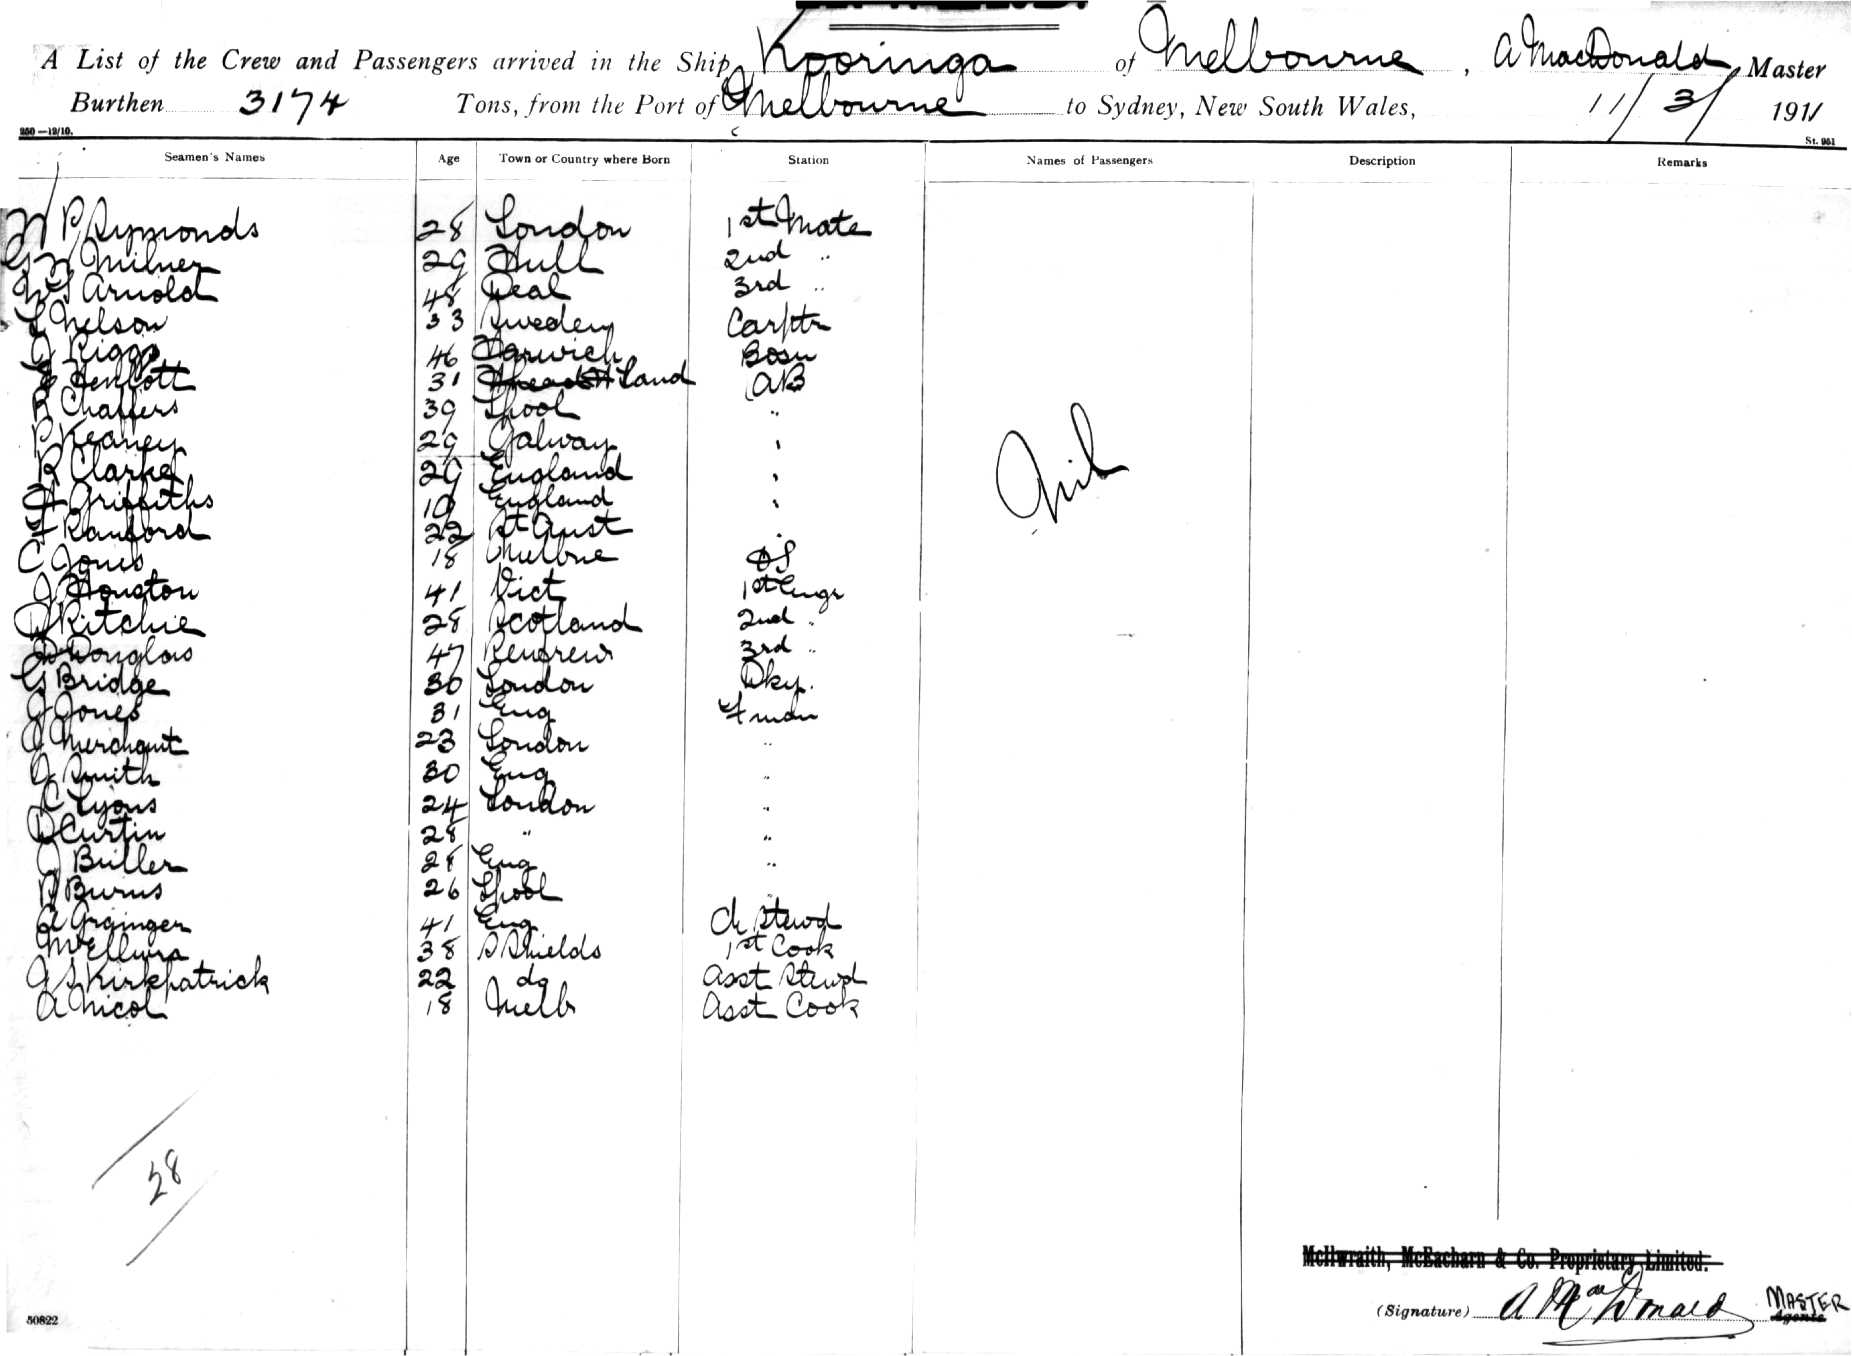 A List of the Crew and Passengers arrived in the Ship Kooringa of Melbourne, A MacDonald Master
Burthen 3174 Tons, from the Port of Melbourne to Sydney, New South Wales, 11/3/1911
250—12/10. St. 961
Seamen's Names Age Town or Country where Born Station Names of Passengers Description Remarks
P Symonds 28 London 1st Mate
Milner 29 Hull 2nd "
Arnold 48 Deal 3rd "
Nelson 33 Sweden Carptr
J Riggs 46 Harwich Bosn
E Henlott 31 land AB
R Chaffers 39 Lpool "
P Keaney 29 Galway "
R Clarke 29 England "
H Griffiths 19 England "
F Ranford 22 St Aust "
C Jones 18 Melbne OS
J Houston 41 Vict 1st Engr
D Ritchie 28 Scotland 2nd "
D Douglas 47 Renfrew 3rd "
G Bridge 30 London Dky.
J Jones 31 Eng Fman
J Merchant 23 London "
J Smith 30 Eng "
C Lyons 24 London "
D Curtin 28 " "
J Butler 28 Eng "
P Burns 26 Lpool "
A Grainger 41 Eng Ch Stewd
38 S Shields 1st Cook
J S Kirkpatrick 22 do Asst Stewd
A Nicol 18 Melb Asst Cook
Nil
28
McIlwraith, McEacharn & Co. Proprietary Limited.
(Signature) A MacDonald MASTER
Agents
50822